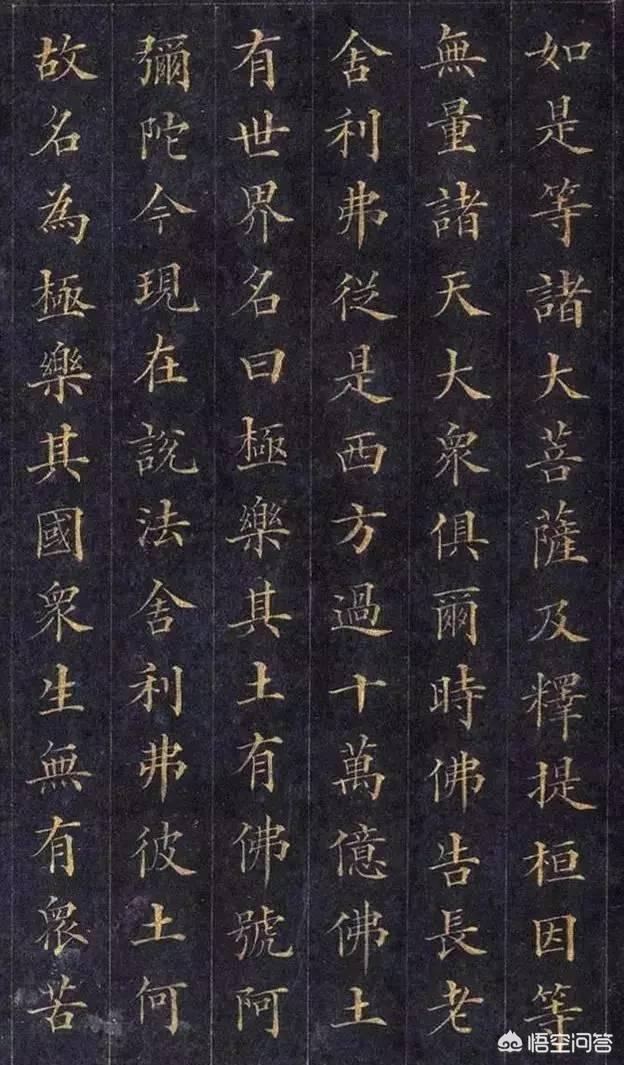 如是等諸大菩薩及釋提桓因等
無量諸天大衆俱爾時佛告長老
舍利弗從是西方過十萬億佛土
有世界名曰極樂其土有佛號阿
彌陀今現在説法舍利弗彼土何
故名為極樂其國衆生無有衆苦
悟空问答